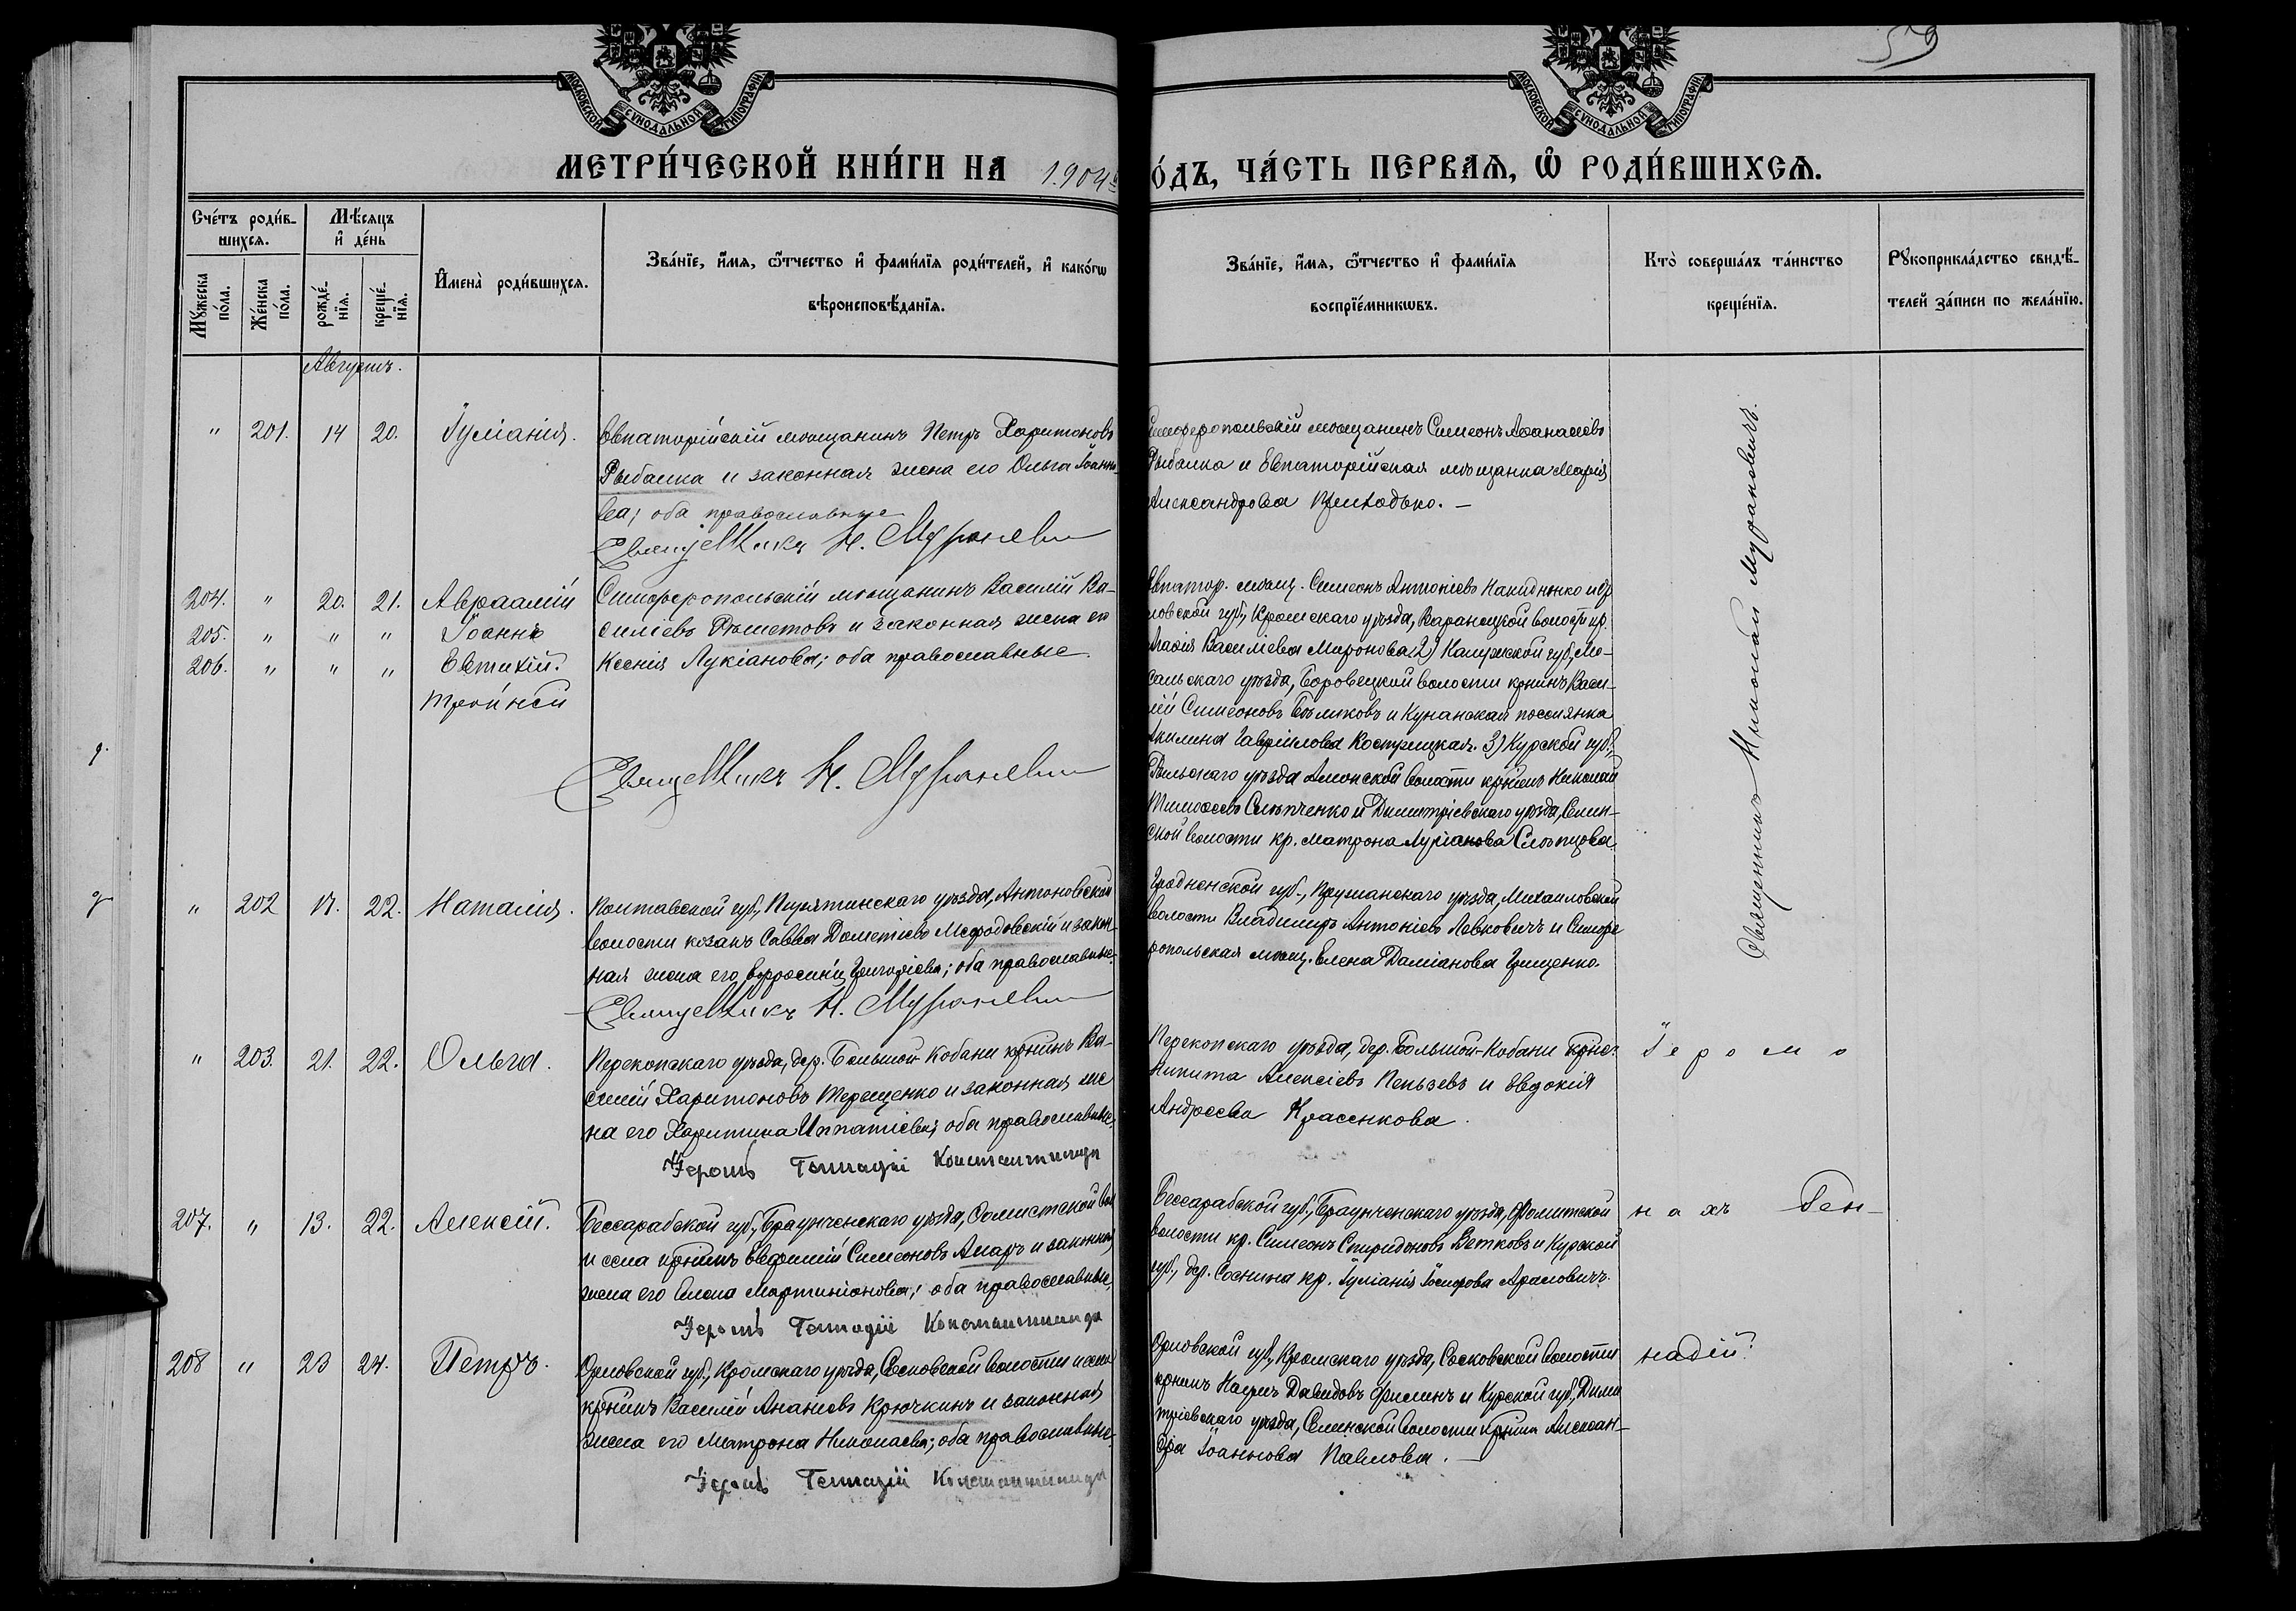 59
МОСКОВСКОЙ СѴНОДАЛЬНОЙ ТИПОГРАФІИ
МОСКОВСКОЙ СѴНОДАЛЬНОЙ ТИПОГРАФІИ
МЕТРИ́ЧЕСКОЙ КНИ́ГИ НА 1904
О́ДЪ, ЧА́СТЬ ПЕРВАѦ, Ѡ РОДИ́ВШИХСѦ.
Сче́тъ роди́в-
шихсѧ.
Мѣ́сяцъ
и де́нь
Мꙋ́жеска
по́ла.
Же́нска
по́ла.
рожде́-
нїя.
креще́-
нїя.
Имена̀ роди́вшихсѧ.
Зва́нїе, и́мѧ, ѻ́тчество и фами́лїѧ роди́телей, и како́гѡ
вѣроисповѣ́данїѧ.
Зва́нїе, и́мѧ, ѻ́тчество и фами́лїѧ
воспрїе́мникѡвъ.
Кто̀ соверша́лъ та́инство
креще́нїѧ.
Рꙋкоприкла́дство свидѣ́-
телей за́писи по жела́нїю.
Августъ.
" 201. 14 20. Іуліанія.
Евпаторійскій мѣщанинъ Петръ Харитоновъ
Рыбалка и законная жена его Ольга Іоанно-
ва; оба православные
Священникъ Н. Мураневич
Симферопольскій мѣщанинъ Симеонъ Аѳанасіевъ
Рыбалка и Евпаторійская мѣщанка Марія
Александрова Приходько. —
Священникъ Николай Муранович.
204. " 20. 21. Авраамій
205. " " " Іоаннъ
206. " " " Евтихій.
тройней
Симферопольскій мѣщанинъ Василій Ва-
силіевъ Рѣшетовъ и законная жена его
Ксенія Лукіанова; оба православные.
Священникъ Н. Мураневич
Евпатор. мѣщ. Симеонъ Антоніевъ Накидненко и Ор
ловской губ., Кромскаго уѣзда, волости кр.
Василіева Миронова 2) Калужской губ., Мо-
сальскаго уѣзда, Боровецкой волости крнинъ Васи-
лій Симеоновъ Бѣликовъ и поселянка
Акилина Гавріилова Кострицкая. 3) Курской губ.,
Рыльскаго уѣзда Амонской волости крнинъ Николай
Тимоѳеевъ Слѣпченко и Димитріевскаго уѣзда, Селин-
ской волости кр. Матрона Слѣпцова.
" 202 17. 22. Наталія.
Полтавской губ., Пирятинскаго уѣзда, Антоновской
волости козакъ Савва Дометіевъ Меѳодовскій и закон-
ная жена его Евфросинія Григоріева; оба православные.
Священникъ Н. Мураневич
Гродненской губ., Пружанскаго уѣзда, Михаиловской
волости Владимиръ Антоніевъ Левковичъ и Симфе
ропольская мѣщ. Елена Даміанова Грищенко.
" 203. 21. 22. Ольга.
Перекопскаго уѣзда, дер. Большой-Кобани крнинъ Ва-
силій Харитоновъ Терещенко и законная же
на его Харитина Ипатіева; оба православные.
Іеромъ Геннадій Константиниди
Перекопскаго уѣзда, дер. Большой-Кобани крне:
Никита Алексіевъ Пеньзевъ и Евдокія
Андреева Красенкова.
Іеромо
207. " 13. 22. Алексій.
Бессарабской губ., уѣзда, вол
и села крнинъ Евфимій Симеоновъ и законная
жена его Елена Мартиніанова; оба православные.
Іеромъ Геннадій Константиниди
Бессарабской губ., уѣзда,
волости кр. Симеонъ Спиридоновъ Ветковъ и Курской
губ., дер. Соснина кр. Іуліанія Іосифова
нахъ Ген-
208 " 23 24. Петръ.
Орловской губ., Кромскаго уѣзда, Сосковской волости и села
крнинъ Василій Ананіевъ Крючкинъ и законная
жена его Матрона Николаева; оба православные.
Іеромъ Геннадій Константиниди
Орловской губ., Кромскаго уѣзда, Сосковской волости
крнинъ Давидовъ Филинъ и Курской губ., Дими
тріевскаго уѣзда, Селинской волости крнка Алексан-
дра Іоаннова Павлова. —
надій.